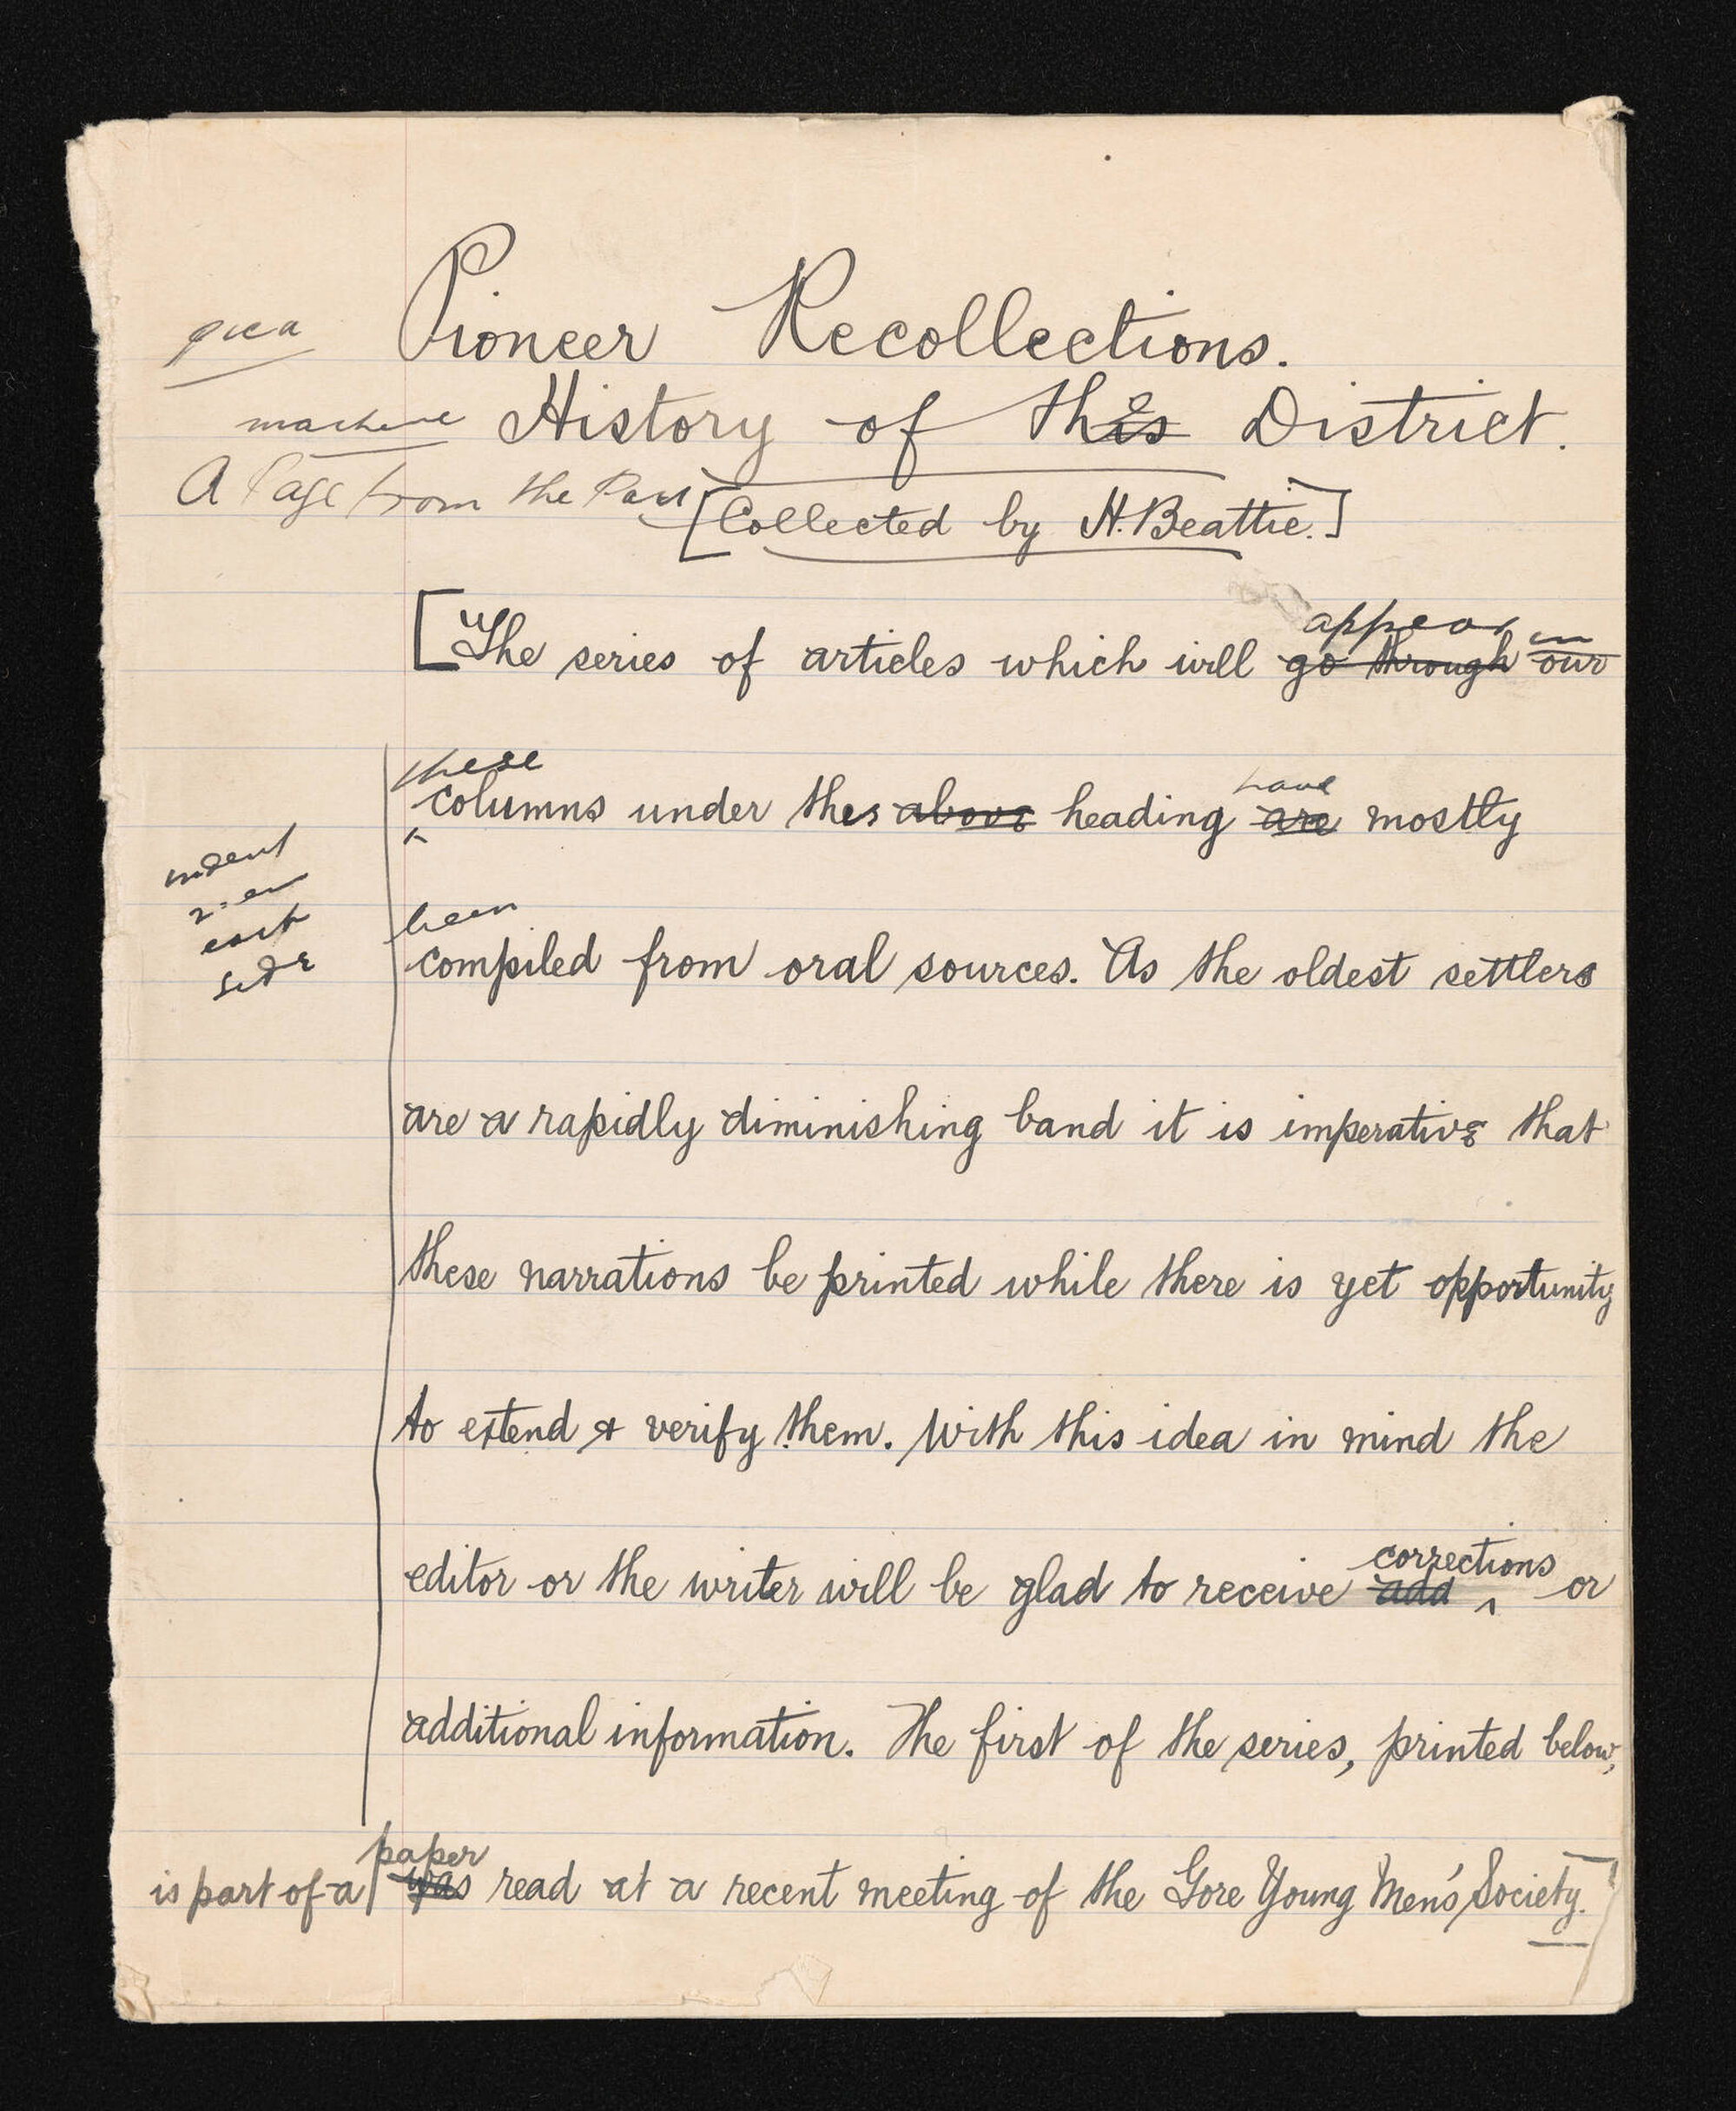 pica
Pioneer Recollections.
machine
History of the District.
A Page from the Past
[Collected by H. Beattie.]
appear in
[The series of articles which will go through our
these have
columns under this above heading are mostly
indent
2 em
each
side
been
compiled from oral sources. As the oldest settlers
are a rapidly diminishing band it is imperative that
these narrations be printed while there is yet opportunity
to extend & verify them. With this idea in mind the
corrections
editor or the writer will be glad to receive add ^ or
additional information. The first of the series, printed below,
paper
is part of a was read at a recent meeting of the Gore Young Men's Society.]